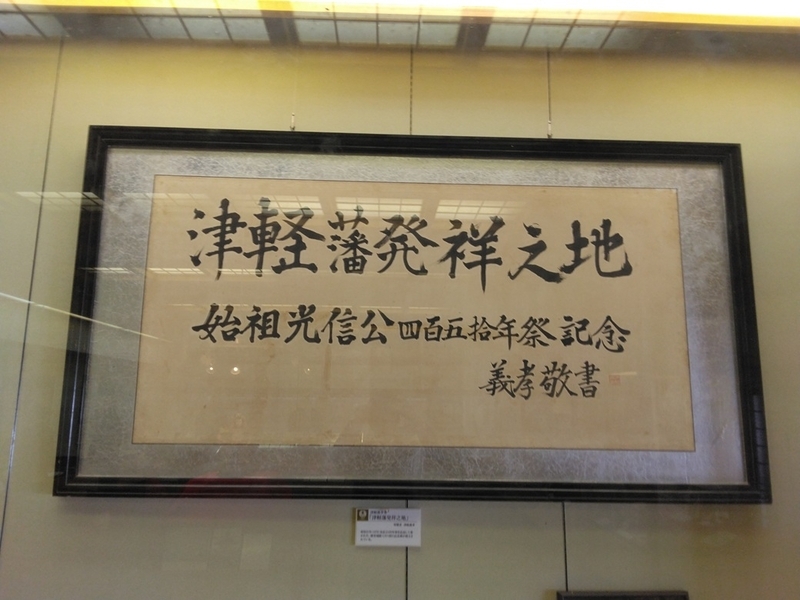 津軽藩発祥之地
始祖光信公四百五拾年祭記念
義孝敬書
「津軽藩発祥之地」